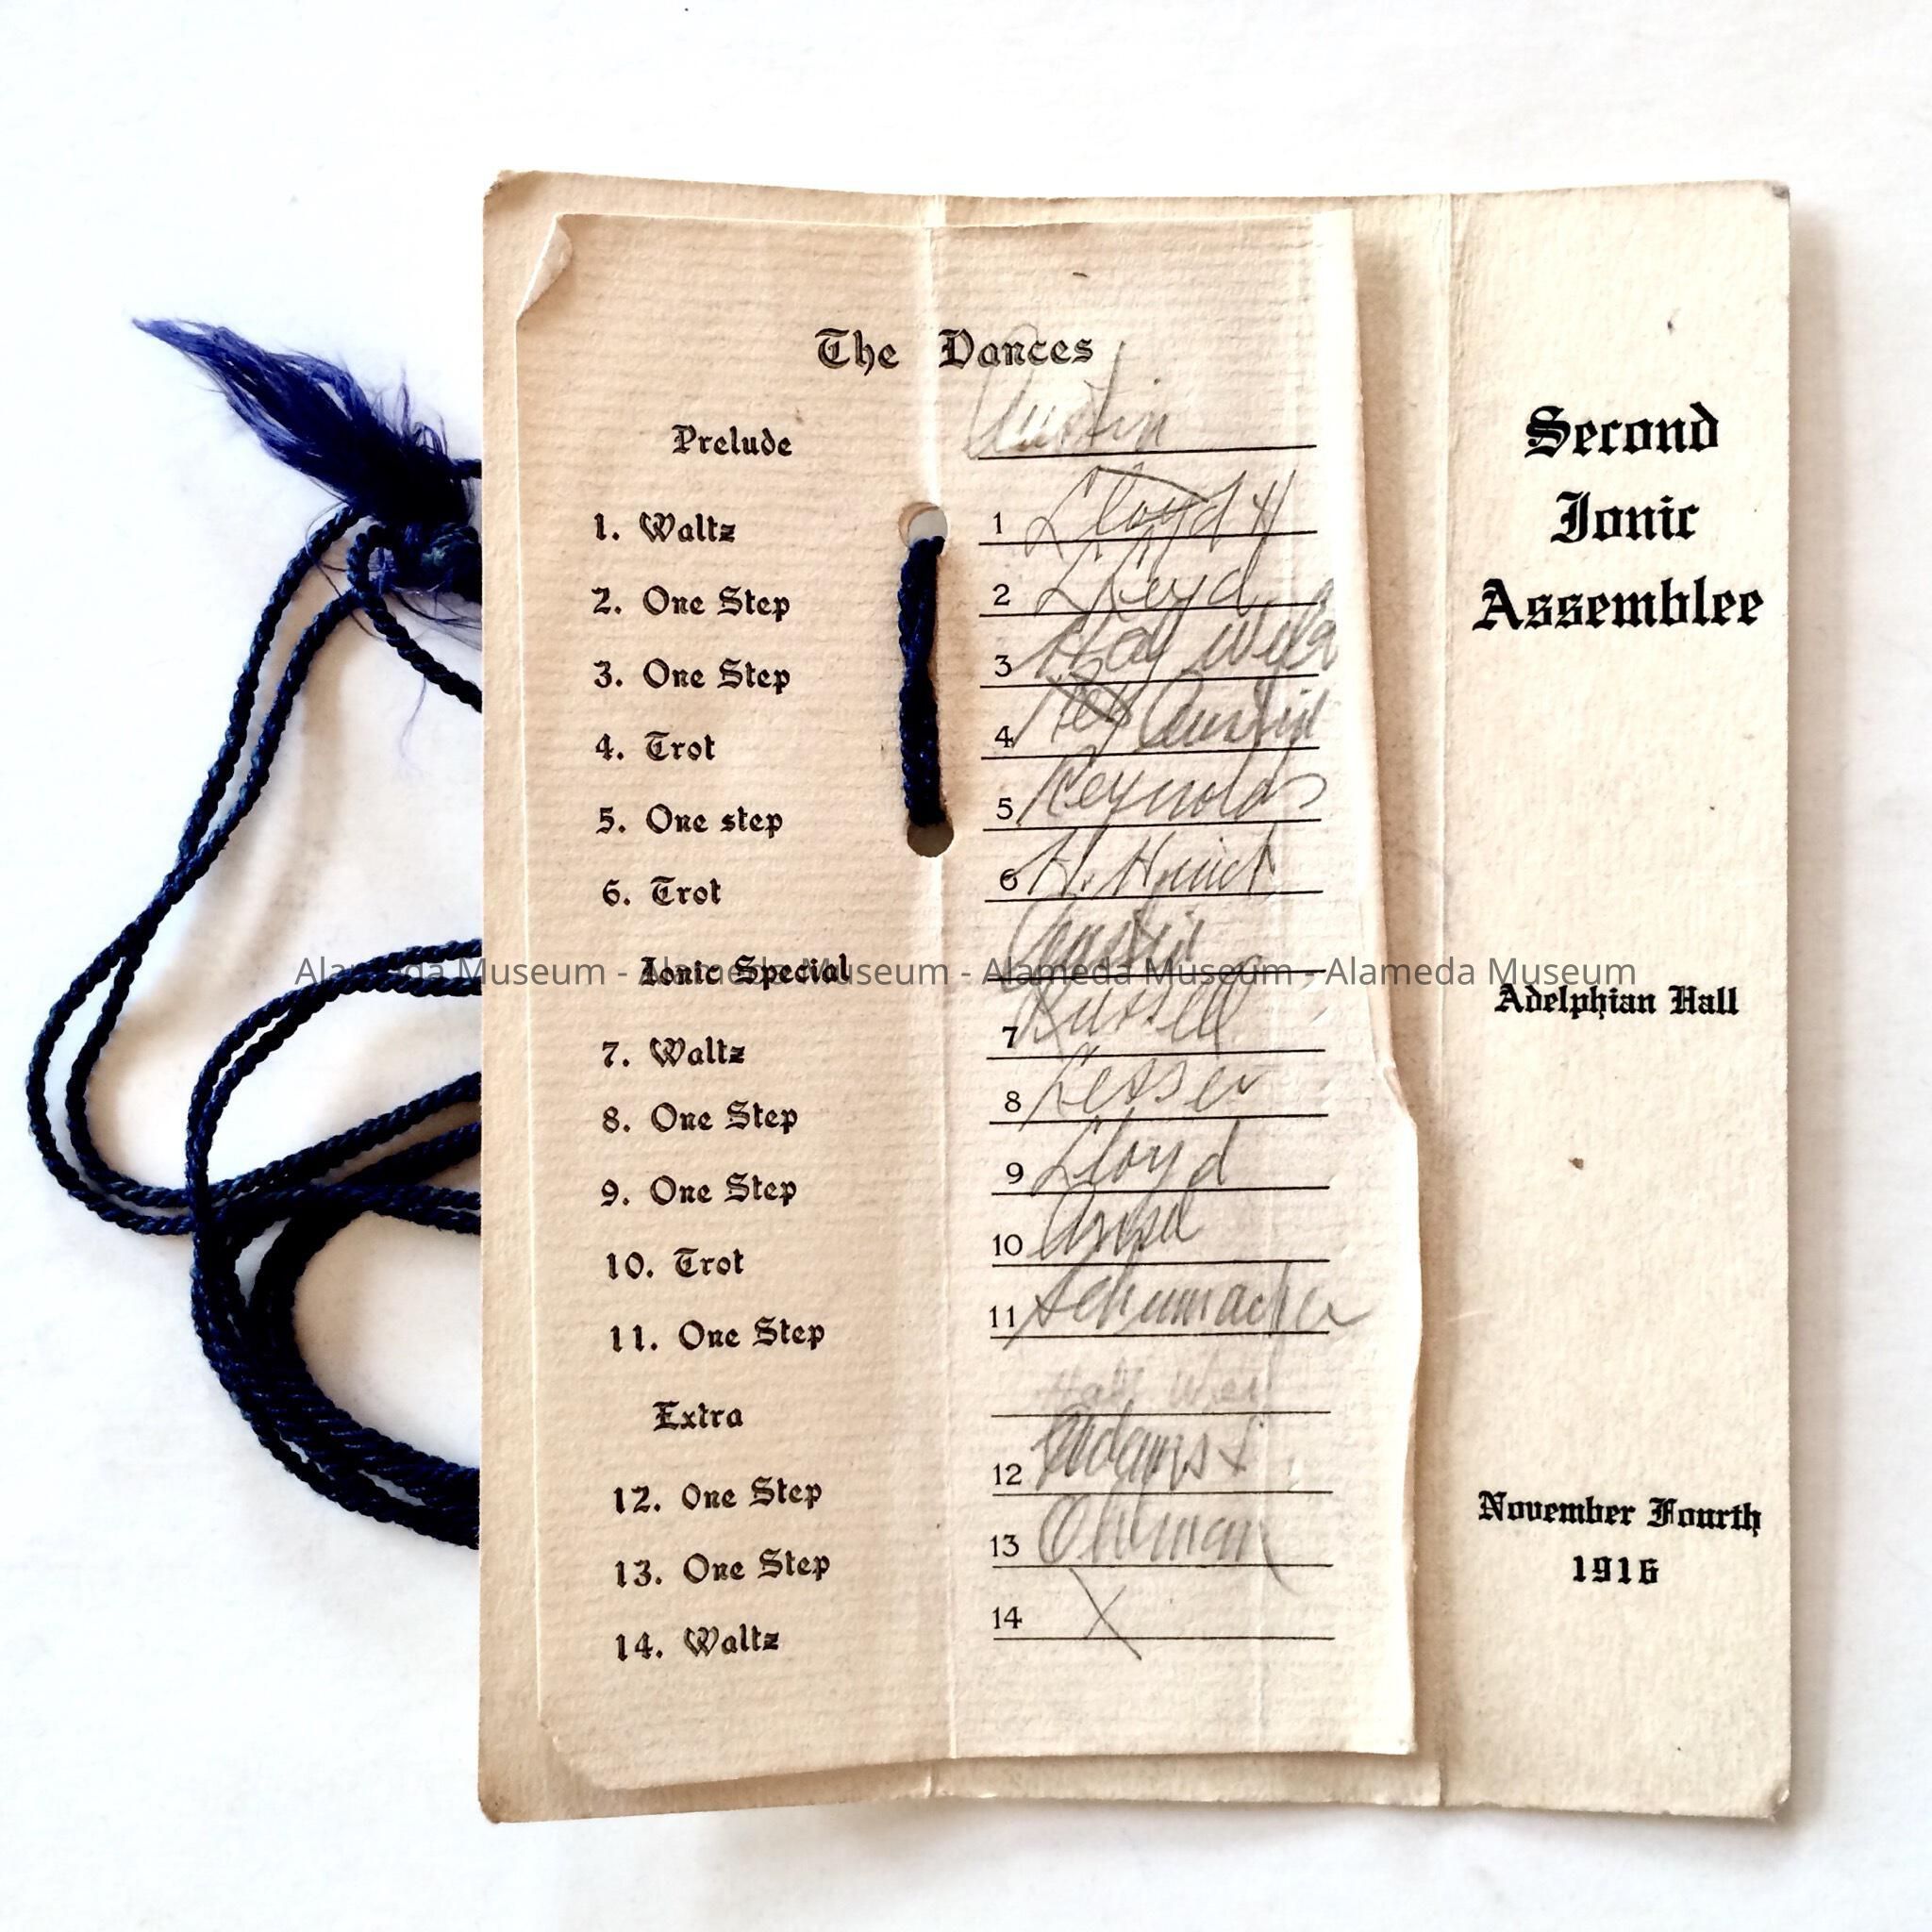 The Dances
Prelude Austin
1. Waltz 1 Lloyd H
2. One Step 2 Lloyd
3. One Step 3
4. Trot 4 Austin
5. One step 5 Reynolds
6. Trot 6 H.
Ionic Special Austin
7. Waltz 7 Russell
8. One Step 8 Lesser
9. One Step 9 Lloyd
10. Trot 10
11. One Step 11 Schumacher
Extra
12. One Step 12 Adams
13. One Step 13
14. Waltz 14 X
Second
Ionic
Assemblee
Adelphian Hall
November Fourth
1916
Alameda Museum - Alameda Museum - Alameda Museum - Alameda Museum